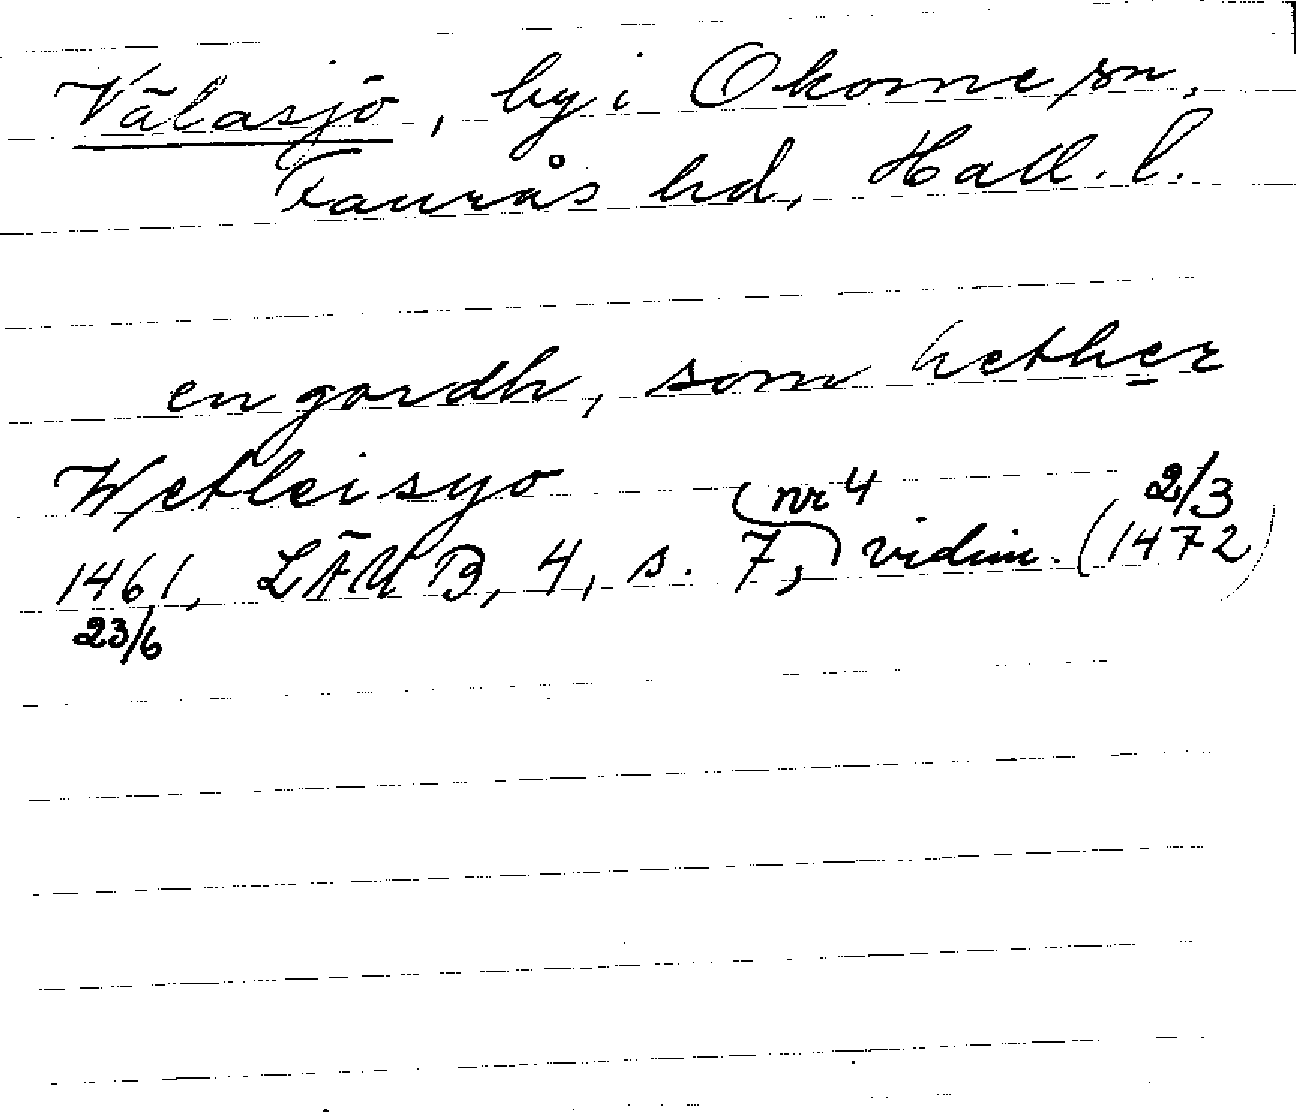 Välasjö, by i Okome sn,
Faurås hd, Hall. l.
en gardh, som hether
Wetleisyo
nr 4 2/3
1461, LÄUB, 4, s. 7, vidim. (1472)
23/6